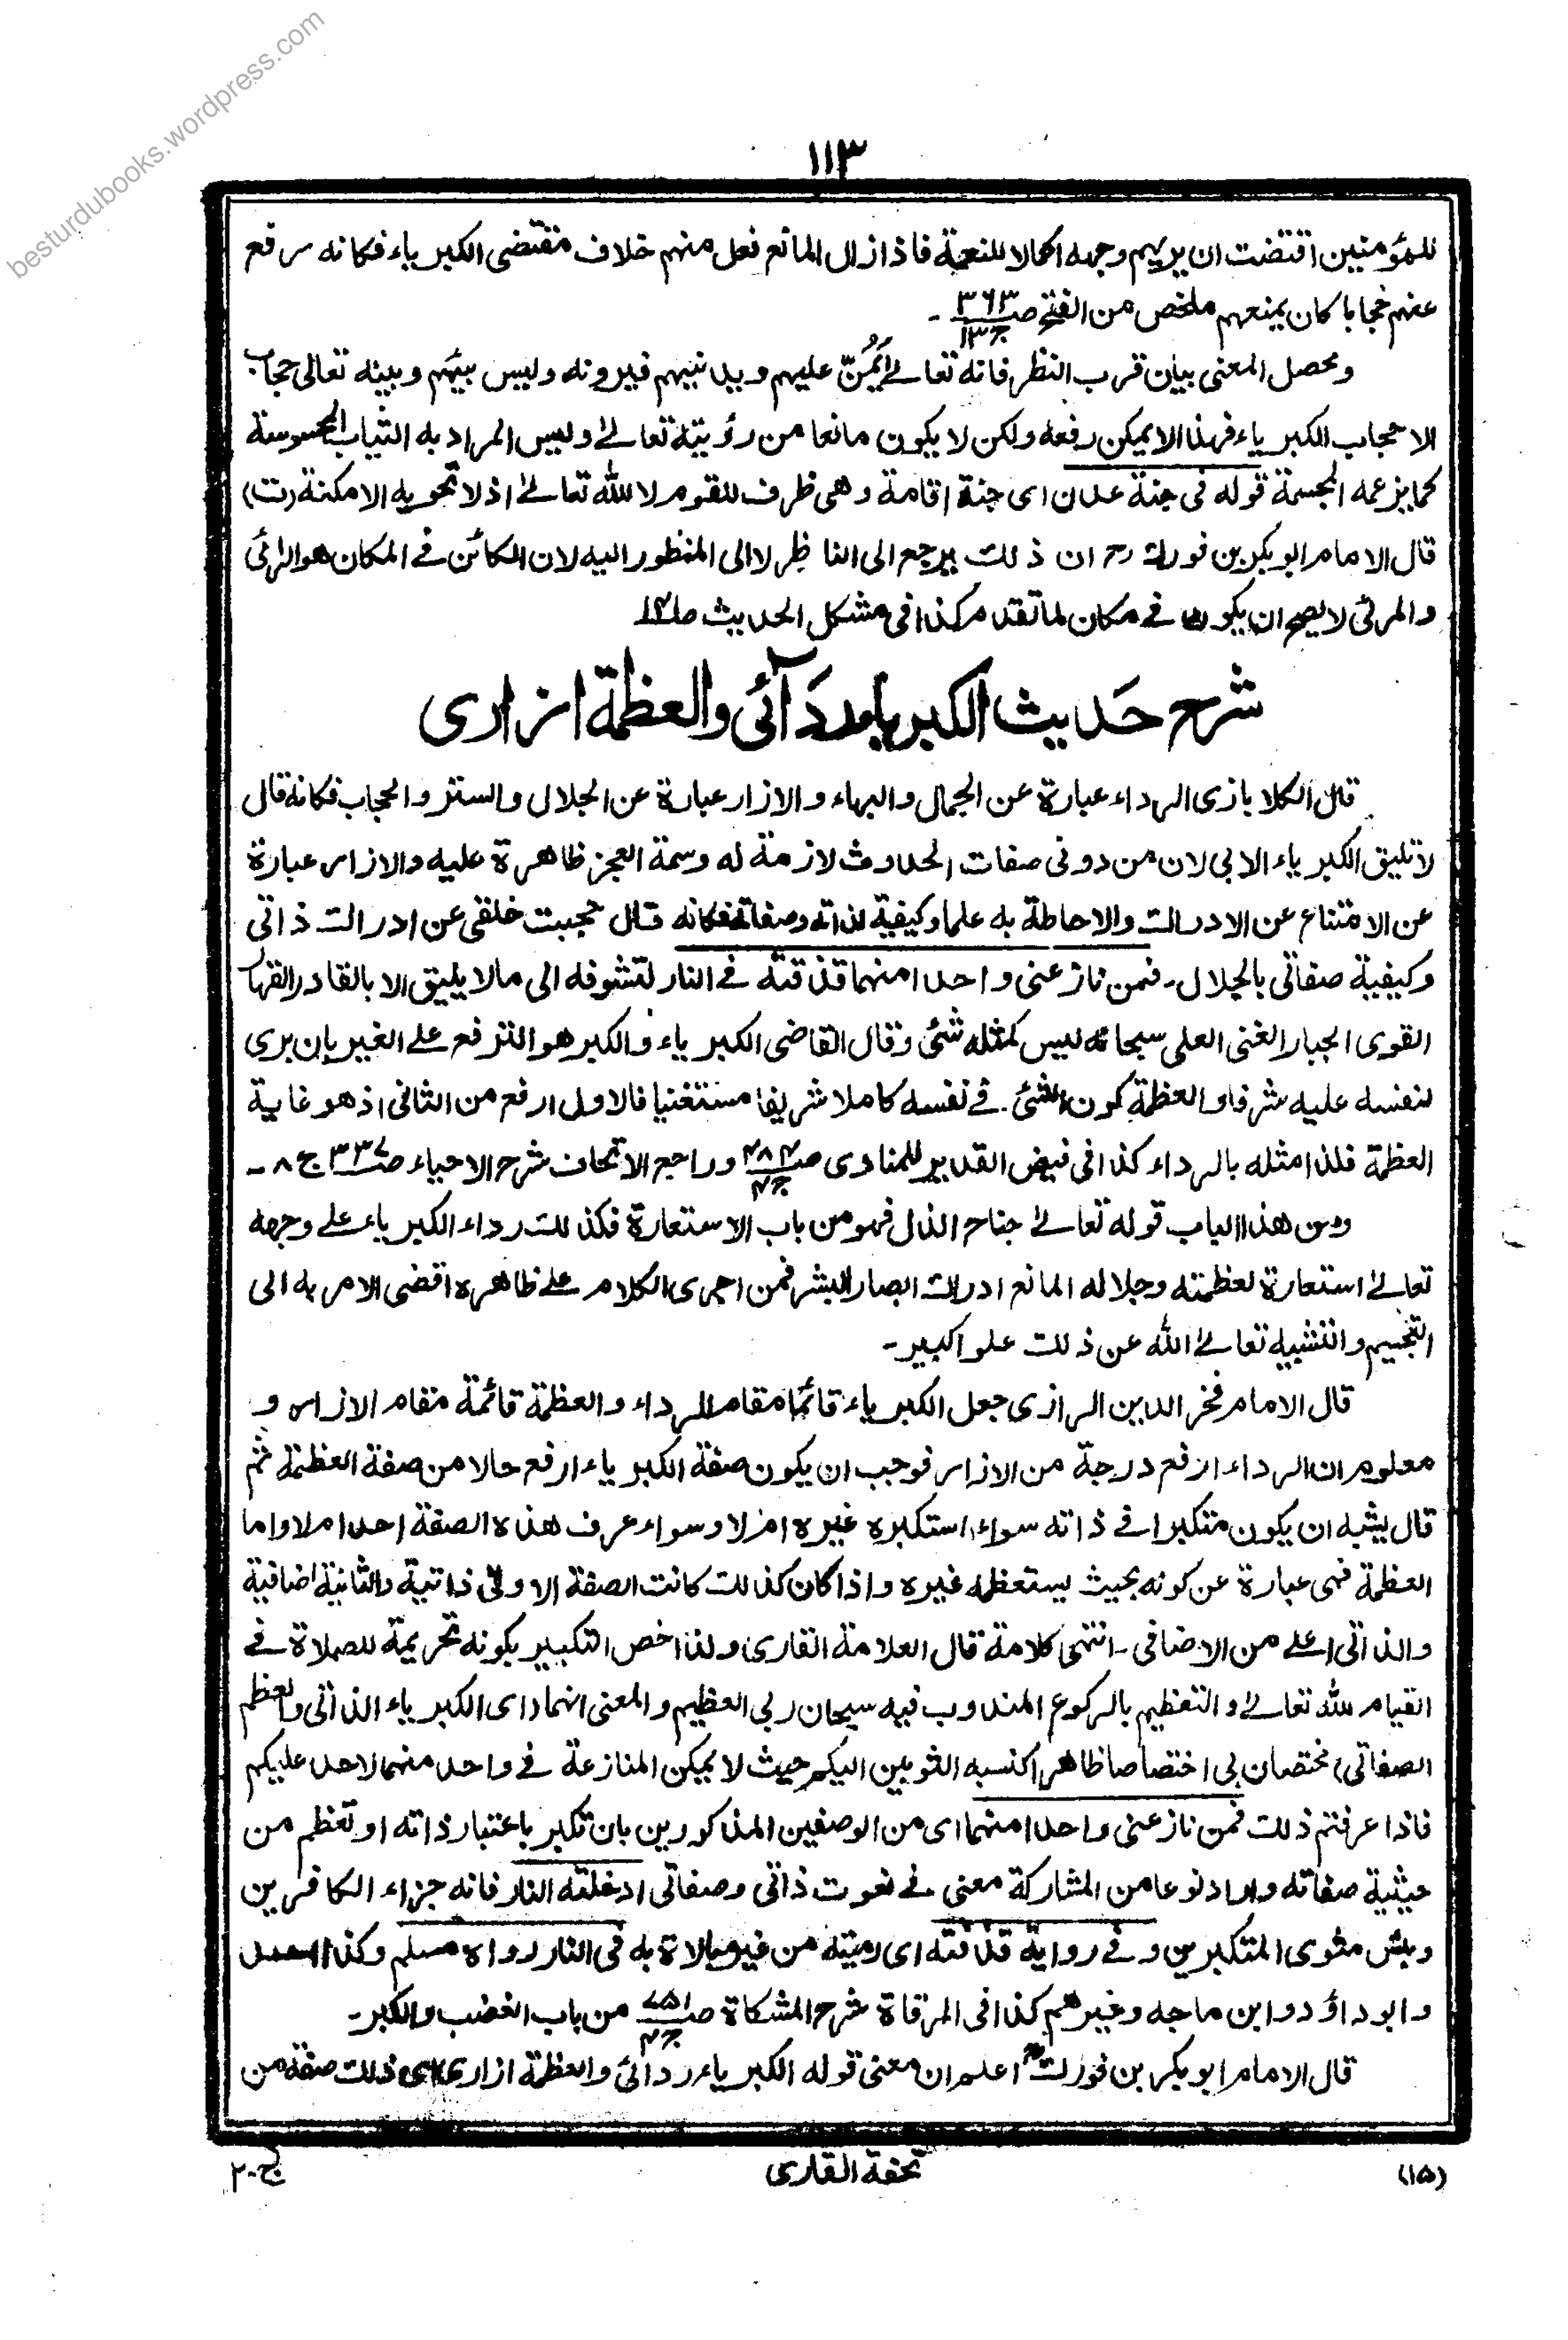 besturdubooks.wordpress.com
١١٣
للمؤمنين اقتضت ان يريهم وجهه اكمالا للنعمة فاذا زال المانع فعل منهم خلاف مقتضى الكبرياء فكانه رفع
عنهم حجابا كان يمنعهم ملخص من الفتح صـ ٣٦٣ ج ١٣ -
ومحصل المعنى بيان قرب النظر فانه تعالى يَمُنّ عليهم ويدنيهم فيرونه وليس بينهم وبينه تعالى حجاب
الا حجاب الكبرياء فهذا لا يمكن رفعه ولكن لا يكون مانعا من رؤيته تعالى وليس المراد به الثياب المحسوسة
كما يزعمه المجسمة قوله فى جنة عدن اى جنة اقامة وهى ظرف للقوم لا لله تعالى اذ لا تحويه الامكنة (ت)
قال الامام ابو بكر بن فورك رح ان ذلك يرجع الى الناظر لا الى المنظور اليه لان الكائن فى المكان هو الرائى
والمرئى لا يصح ان يكون فى مكان لما تقدم كذا فى مشكل الحديث
شرح حَديث الكبرياء ردَآئى والعظمة ازارى
قال الكلاباذى الرداء عبارة عن الجمال والبهاء والازار عبارة عن الجلال والستر والحجاب فكانه قال
لا تليق الكبرياء الا بى لان من دونى صفات الحدوث لازمة له وسمة العجز ظاهرة عليه والازار عبارة
عن الامتناع عن الادراك والاحاطة به علما وكيفية لذاته وصفاته فكانه قال حجبت خلقى عن ادراك ذاتى
وكيفية صفاتى بالجلال - فمن نازعنى واحدا منهما قذفته فى النار لتشوفه الى مالا يليق الا بالقادر القهار
القوى الجبار الغنى العلى سبحانه ليس كمثله شئ وقال القاضى الكبرياء والكبر هو الترفع على الغير بان يرى
لنفسه عليه شرفا والعظمة كون الشئ فى نفسه كاملا شريفا مستغنيا فالاول ارفع من الثانى اذ هو غاية
العظمة فلذا مثله بالرداء كذا فى فيض القدير للمناوى صـ ٤٨٤ ج ٤ وراجع الاتحاف شرح الاحياء صـ ٣٣٧ ج ٨ -
ومن هذا الباب قوله تعالى جناح الذل فهو من باب الاستعارة فكذلك رداء الكبرياء على وجهه
تعالى استعارة لعظمته وجلاله المانع ادراك ابصار البشر فمن اجرى الكلام على ظاهره اقضى الامر به الى
التجسيم والتشبيه تعالى الله عن ذلك علوا كبير -
قال الامام فخر الدين الرازى جعل الكبرياء قائما مقام الرداء والعظمة قائمة مقام الازار و
معلوم ان الرداء ارفع درجة من الازار فوجب ان يكون صفة الكبرياء ارفع حالا من صفة العظمة ثم
قال يشبه ان يكون متكبرا فى ذاته سواء استكبره غيره ام لا وسواء عرف هذه الصفة احد ام لا واما
العظمة فهى عبارة عن كونه بحيث يستعظمه غيره واذا كان كذلك كانت الصفة الاولى ذاتية والثانية اضافية
والذاتى اعلى من الاضافى - انتهى كلامة قال العلامة القارى ولذا خص التكبير بكونه تحريمة للصلاة فى
القيام لله تعالى والتعظيم بالركوع المندوب فيه سبحان ربى العظيم والمعنى انهما (اى الكبرياء الذاتى والعظم
الصفاتى) مختصان بى اختصاصا ظاهرا كنسبه الثوبين اليكم حيث لا يمكن المنازعة فى واحد منهما لاحد عليكم
فاذا عرفتم ذلك فمن نازعنى واحدا منهما اى من الوصفين المذكورين بان تكبر باعتبار ذاته او تعظم من
حيثية صفاته واراد نوعا من المشاركة معنى فى نعوت ذاتى وصفاتى ادخلته النار فانه جزاء الكافرين
وبئس مثوى المتكبرين وفى رواية قذفته اى رميته من غير مبالاة به فى النار رواه مسلم وكذا احمد
وابو داؤد وابن ماجه وغيرهم كذا فى المرقاة شرح المشكاة صـ ٧٥١ ج ٤ من باب الغضب والكبر -
قال الامام ابو بكر بن فورك اعلم ان معنى قوله الكبرياء ردائى والعظمة ازارى اى ذلك صفة من
(١٥)
تحفة القارى
ج-٢